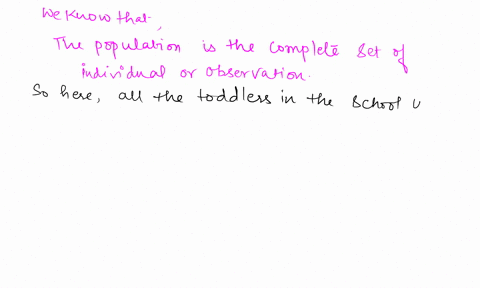 We know that,
The population is the complete set of
individual or observation.
So here, all the toddlers in the school